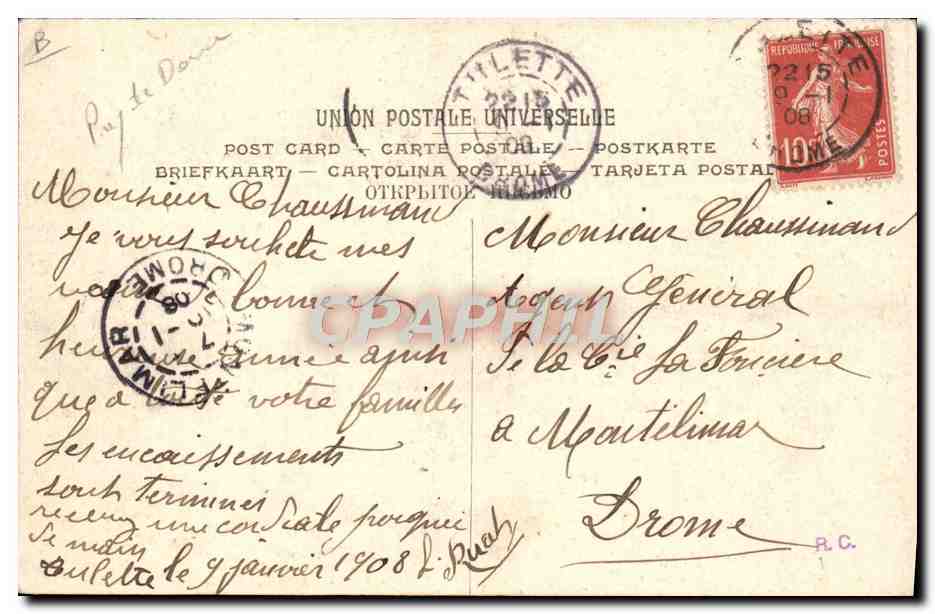 B
Puy de Dome
TULETTE
22 15
08
DROME
REPUBLIQUE FRANÇAISE
10
POSTES
22 15
9 -1
08
DROME
UNION POSTALE UNIVERSELLE
POST CARD — CARTE POSTALE — POSTKARTE
BRIEFKAART — CARTOLINA POSTALE — TARJETA POSTAL
ОТКРЫТОЕ ПИСЬМО
Monsieur Chaussinand
je vous souhete mes
bonne et
heureuse année ainsi
que a votre familles
Les encaissements
sont terminés
recevez une cordiale poignée
de main
Tulette le 9 janvier 1908
MONTELIMAR
DROME
08
Monsieur Chaussinand
Agent Général
De la Cie La Foncière
a Montélimar
Drome
R. C.
CPAPHIL